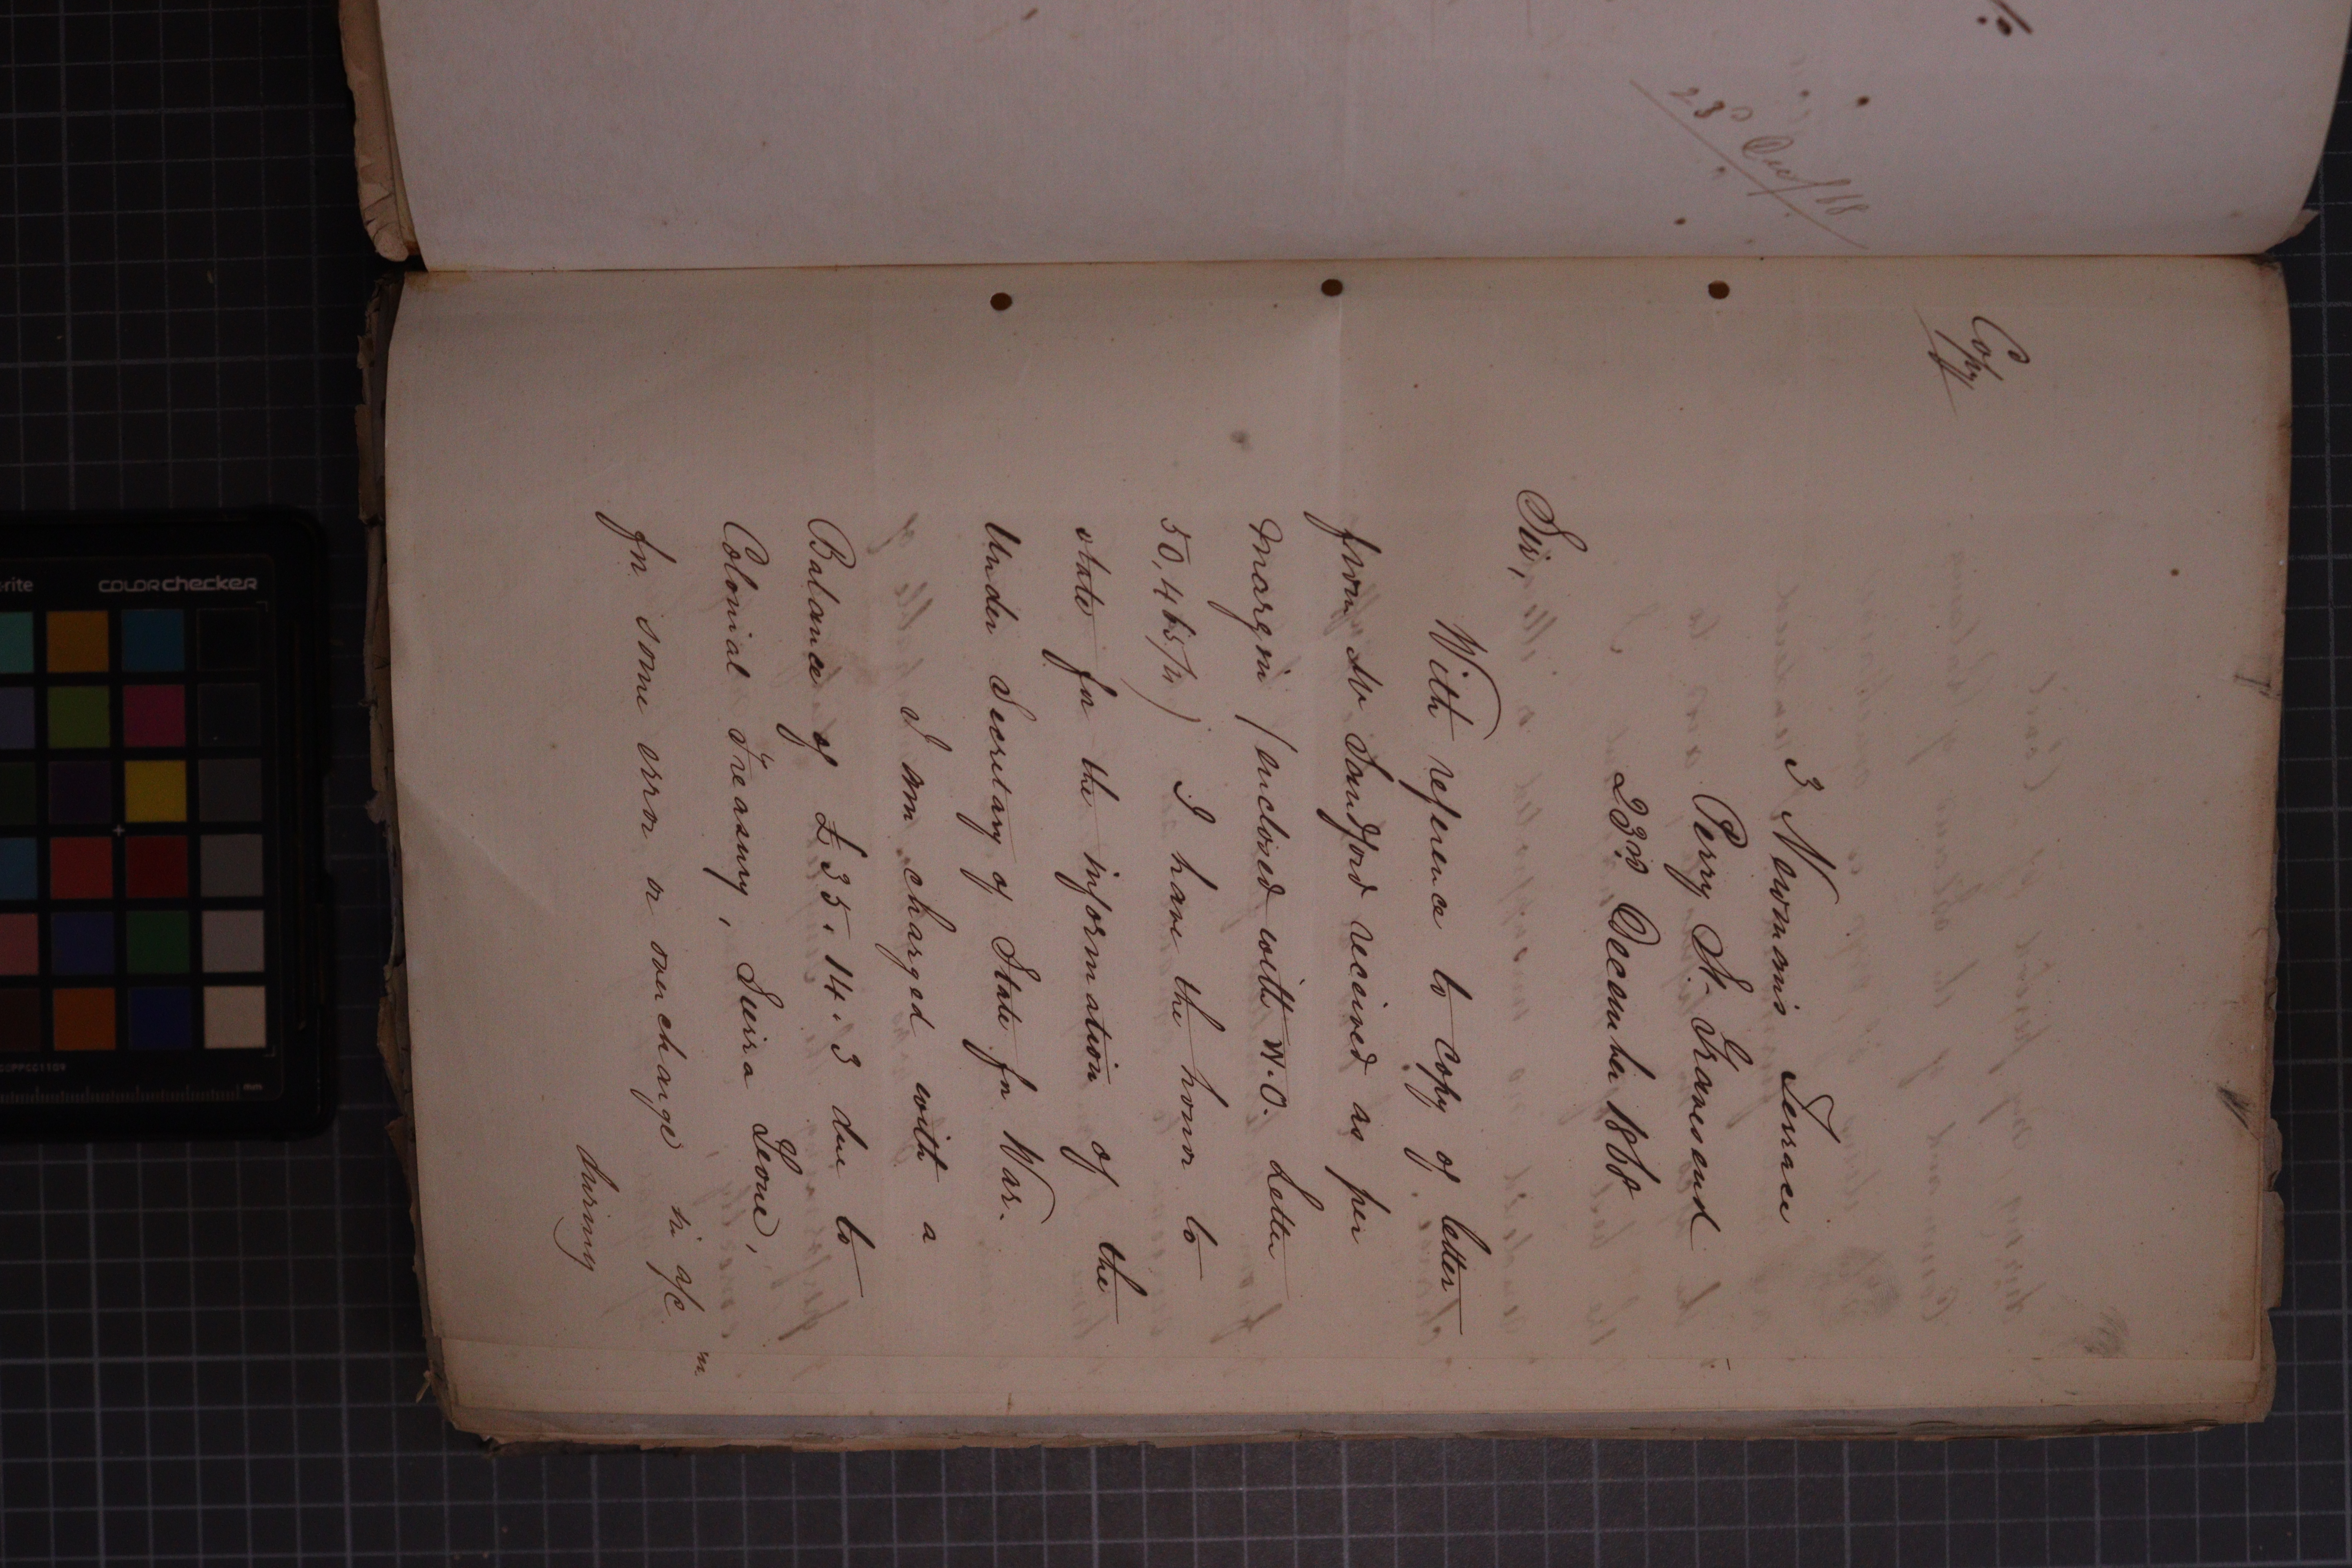 23d Dec/68
Copy
3 Newman's Terrace
Perry St. Gravesend
23rd December 1868
Sir,
With reference to copy of letter
from Mr Sandford received as per
margin (enclosed with W.O. Letter
50,465/4) I have the honor to
state for the information of the
Under Secretary of State for War.
I am charged with a
Balance of £35.14.3 due to
Colonial Treasury, Seirra Leone,
for some error or overcharge in a/c
during
-rite
COLORchecker
mm